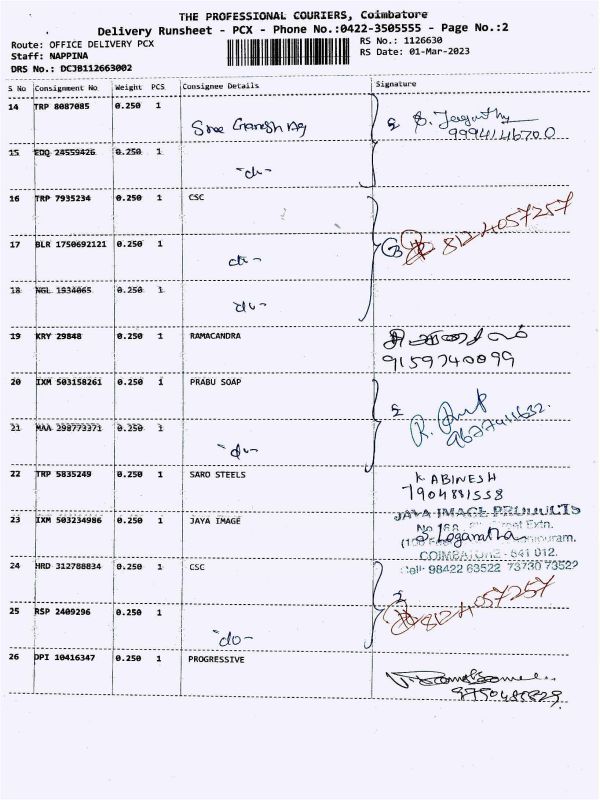 THE PROFESSIONAL COURIERS, Coimbatore
Delivery Runsheet - PCX - Phone No.:0422-3505555 - Page No.:2
Route: OFFICE DELIVERY PCX
RS No.: 1126630
Staff: NAPPINA
RS Date: 01-Mar-2023
DRS No.: DCJB112663002
S No Consignment No Weight PCS Consignee Details Signature
14 TRP 8087085 0.250 1
Sree Ganesh Ag
S. Jeyanthy
9994146700
15 EDQ 24559426 0.250 1
-do-
16 TRP 7935234 0.250 1 CSC
8124057257
17 BLR 1750692121 0.250 1
-do-
18 NGL 1934065 0.250 1
-do-
19 KRY 29848 0.250 1 RAMACANDRA
9159740099
20 IXM 503158261 0.250 1 PRABU SOAP
R.
9627911632.
21 MAA 298773371 0.250 1
-do-
22 TRP 5835249 0.250 1 SARO STEELS
K ABINESH
7904881558
23 IXM 503234986 0.250 1 JAYA IMAGE
JAYA IMAGE PRODUCTS
Street Extn.
S. Loganatha
COIMBATORE - 641 012.
Cell: 98422 63522 73730 73522
24 HRD 312788834 0.250 1 CSC
8124057257
25 RSP 2409296 0.250 1
-do-
26 DPI 10416347 0.250 1 PROGRESSIVE
9750485829